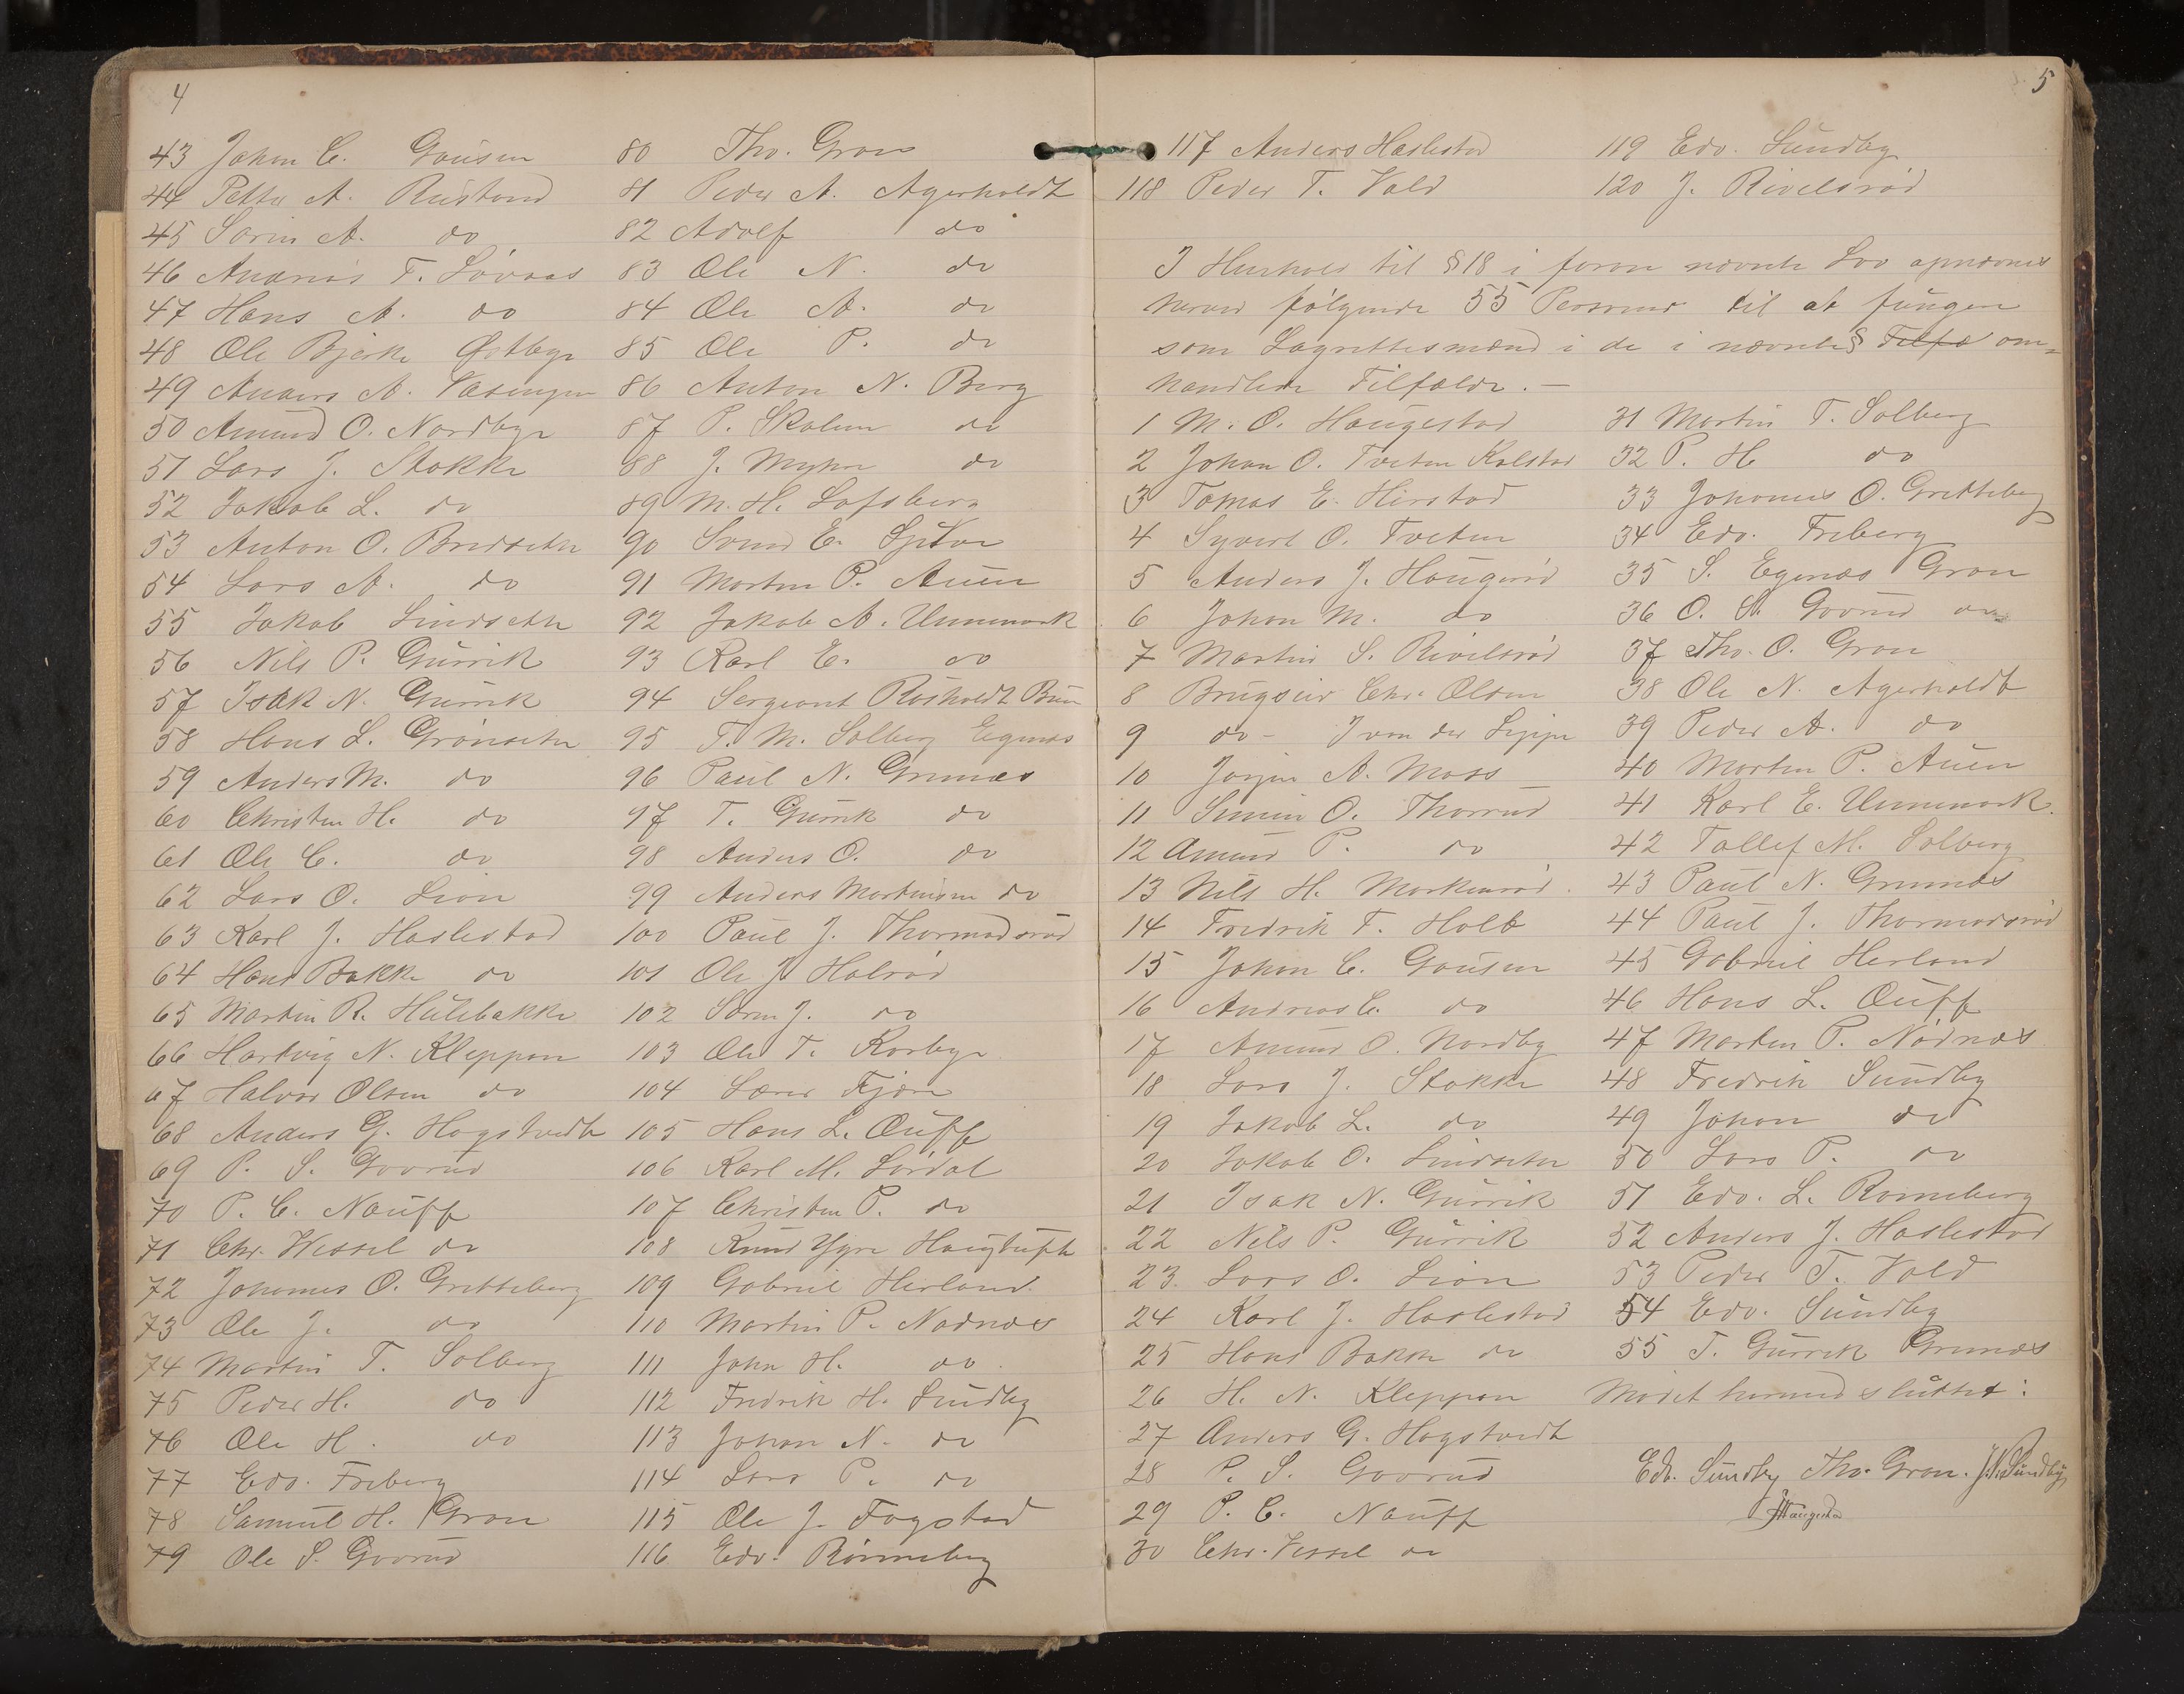 4
43 Johan C. Gousen
44 Petter A. Rustand
45 Sørin A. do
46 Andreas T. Løvaas
47 Hans A. do
48 Ole Bjerke Østbye
49 Anders A. Vasengen
50 Amund O. Nordbye
51 Lars J. Stokke
52 Jakob L. do
53 Anton O. Bredseter
54 Lars A. do
55 Jakob Lindseter
56 Nils P. Gurrik
57 Isak N. Gurrik
58 Hans L. Grønseter
59 Anders M. do
60 Christen H. do
61 Ole C. do
62 Lars O. Lion
63 Karl J. Haslestad
64 Hans Bakke do
65 Martin R. Hulebakke
66 Hartvig N. Kleppan
67 Halvor Olsen do
68 Anders G. Hogstvedt
69 P. S. Govrud
70 P. C. Nauff
71 Chr. Wessel do
72 Johannes O. Gretteberg
73 Ole J. do
74 Martin T. Solberg
75 Peder H. do
76 Ole H. do
77 Edv. Freberg
78 Samuel H. Gran
79 Ole S. Govrud
80 Tho. Gran
81 Peder A. Agerholdt
82 Adolf do
83 Ole N. do
84 Ole A. do
85 Ole P. do
86 Anton N. Berg
87 P. Skalum do
88 J. Myhre do
89 M. H. Lofsberg
90 Svend E.
91 Morten P. Auen
92 Jakob A. Unnemark
93 Karl E. do
94 Sergeant Røsholdt
95 T. M. Solberg Egenæs
96 Paul N. Grennes
97 T. Gurrik do
98 Anders O. do
99 Anders Martinsen do
100 Paul J. Thormodsrød
101 Ole J. Holrød
102 Søren J. do
103 Ole T. Korbye
104 Lærer Fjære
105 Hans L. Auff
106 Karl M. Lørdal
107 Christen P. do
108 Knud Ygre Haugtuft
109 Gabriel Herland
110 Martin P. Nødnæs
111 John H. do
112 Fredrik H. Sundby
113 Johan N. do
114 Lars P. do
115 Ole J. Fogstad
116 Edv. Rønneberg
5
117 Anders Haslestad
118 Peder T. Vold
119 Edv. Sundby
120 J. Rivelsrød
I Henhold til § 18 i foran nævnte Lov opnævnes
herved følgende 55 Personer til at fungere
som Lagrettesmænd i de i nævnte § Tilfæ om=
handlede Tilfælde. —
1 M. O. Haugestad
2 Johan O. Tveten Kolstad
3 Tomas E. Hirstad
4 Syvert O. Tveten
5 Anders J. Haugerød
6 Johan M. do
7 Martin S. Rivelsrød
8 Brugseier Chr. Olsen
9 do - J von der Lippe
10 Jørgen A. Moss
11 Simen O. Thorrud
12 Amund P. do
13 Nils H. Morkenrød
14 Fredrik F. Holt
15 Johan C. Gousen
16 Andreas C. do
17 Amund O. Nordby
18 Lars J. Stokke
19 Jakob L. do
20 Jakob O. Lindseter
21 Isak N. Gurrik
22 Nils P. Gurrik
23 Lars O. Lion
24 Karl J. Haslestad
25 Hans Bakke do
26 H. N. Kleppan
27 Anders G. Hogstvedt
28 P. S. Govrud
29 P. C. Nauff
30 Chr. Vessel do
31 Martin T. Solberg
32 P. H. do
33 Johannes O. Gretteberg
34 Edv. Freberg
35 S. Egenæs Gran
36 O. S. Govrud
37 Tho. O. Gran
38 Ole N. Agerholdt
39 Peder A. do
40 Morten P. Auen
41 Karl E. Unnemark
42 Tollef M. Solberg
43 Paul N. Grennes
44 Paul J. Thormodsrød
45 Gabriel Herland
46 Hans L. Auff
47 Morten P. Nødnæs
48 Fredrik Sundby
49 Johan do
50 Lars P. do
51 Edv. L. Rønneberg
52 Anders J. Haslestad
53 Peder T. Vold
54 Edv. Sundby
55 T. Gurrik Grennes
Mødet hermed sluttet:
Edv. Sundby Tho. Gran. J. N. Sundby
Haugestad